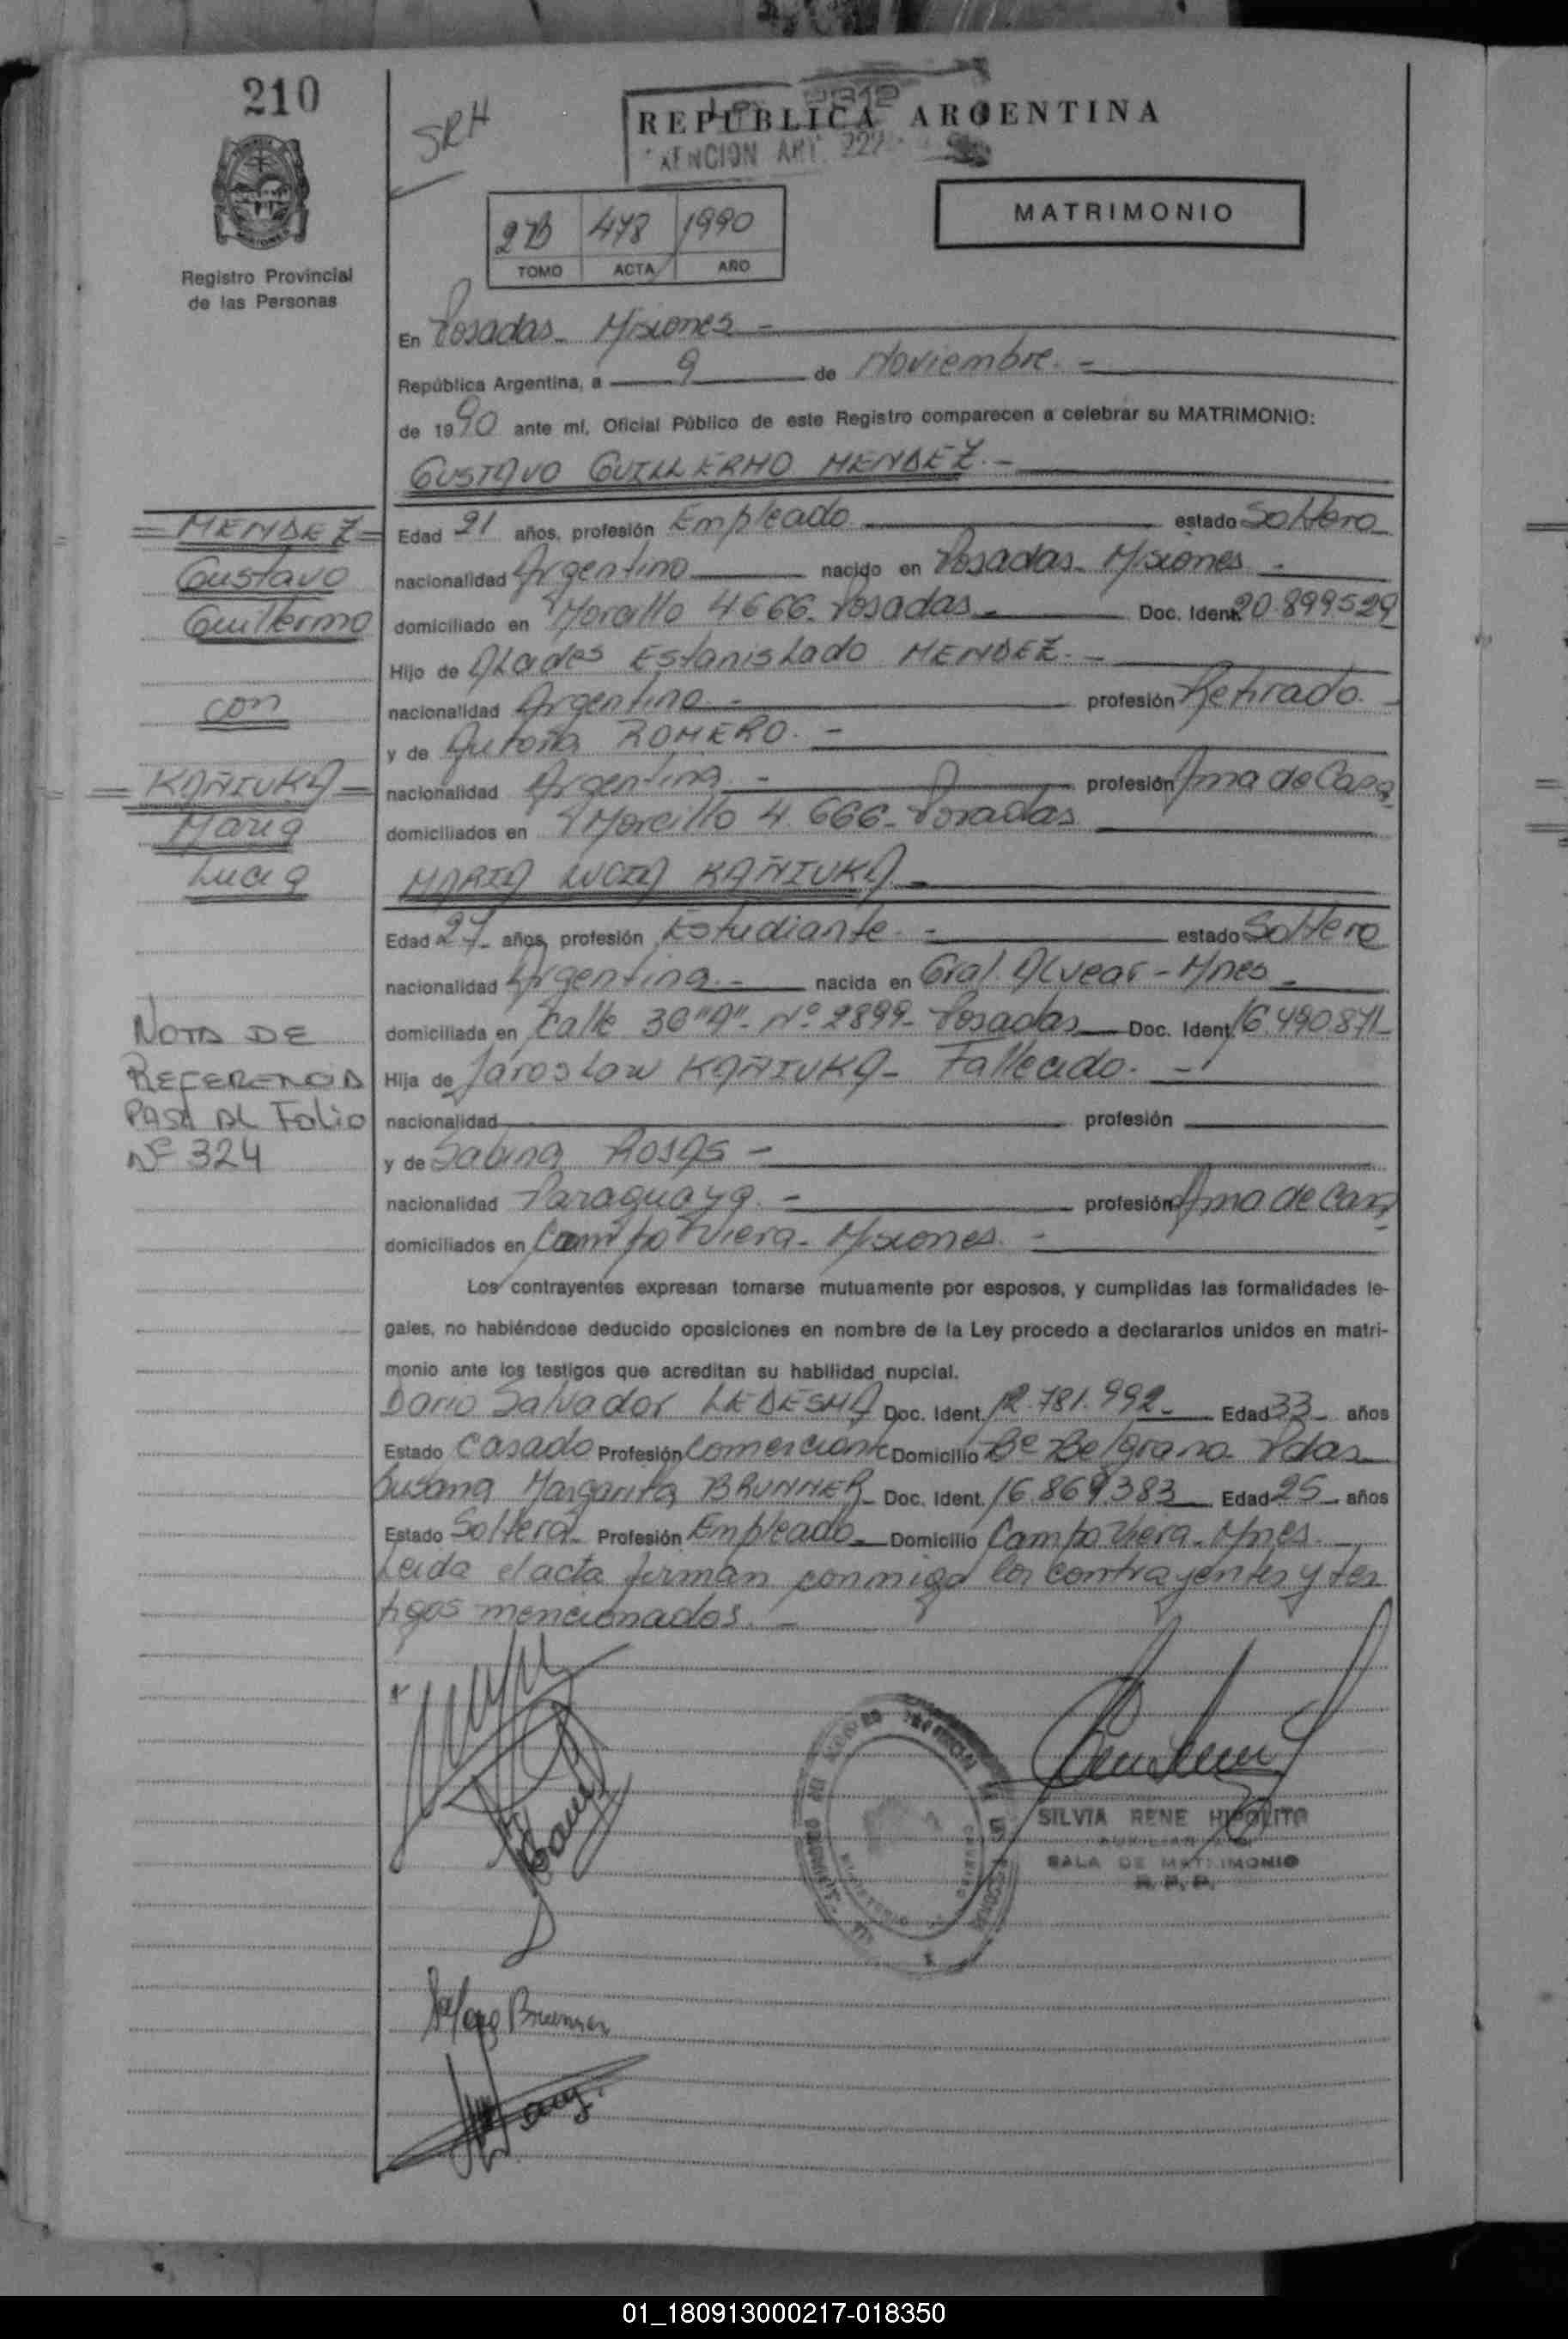 210
SRH
REPUBLICA ARGENTINA
ART. 222
2B 478 1990
TOMO ACTA AÑO
MATRIMONIO
Registro Provincial
de las Personas
En Posadas - Misiones -
República Argentina, a 9 de Noviembre. -
de 1990 ante mí, Oficial Público de este Registro comparecen a celebrar su MATRIMONIO:
GUSTAVO GUILLERMO MENDEZ. -
= MENDEZ =
Gustavo
Guillermo
con
= KAÑIUKA =
Maria
Lucia
Edad 21 años, profesión Empleado estado Soltero
nacionalidad Argentino nacido en Posadas - Misiones -
domiciliado en Morcillo 4666 - Posadas - Doc. Ident. 20.899529
Hijo de Alcides Estanislado MENDEZ. -
nacionalidad Argentino. - profesión Retirado. -
y de ROMERO. -
nacionalidad Argentina - profesión Ama de Casa
domiciliados en Morcillo 4.666 - Posadas
MARIA LUCIA KAÑIUKA -
Edad 27 - años, profesión Estudiante. - estado Soltera
nacionalidad Argentina. - nacida en Gral. Alvear - Mnes -
domiciliada en Calle 36 "A" - Nº 2899 - Posadas Doc. Ident. 16.490.871
Hija de Jaroslow KAÑIUKA - Fallecido. -
nacionalidad profesión
y de Sabina Rosas -
nacionalidad Paraguaya. - profesión Ama de Casa
domiciliados en Campo Viera - Misiones. -
NOTA DE
REFERENCIA
PASA AL Folio
Nº 324
Los contrayentes expresan tomarse mutuamente por esposos, y cumplidas las formalidades le-
gales, no habiéndose deducido oposiciones en nombre de la Ley procedo a declararlos unidos en matri-
monio ante los testigos que acreditan su habilidad nupcial.
Dario Salvador LEDESMA Doc. Ident. 12.781.992 - Edad 33 - años
Estado Casado Profesión Comerciante Domicilio Bº Belgrano - Pdas -
Susana Margarita BRUNNER - Doc. Ident. 16.869.383 Edad 25 - años
Estado Soltera - Profesión Empleado - Domicilio Campo Viera - Mnes. -
Leida el acta firman conmigo los contrayentes y tes
tigos mencionados. -
SILVIA RENE HIPOLITO
AUXILIAR
SALA DE MATRIMONIO
R. P. P.
Brunner
01_180913000217-018350